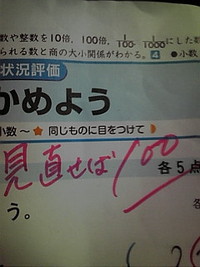 数や整数を10倍、100倍、1/100、1/1000にした数
られる数と商の大小関係がわかる。4 ●小数
状況評価
かめよう
小数~★ 同じものに目をつけて
見直せば100
各5点
う。